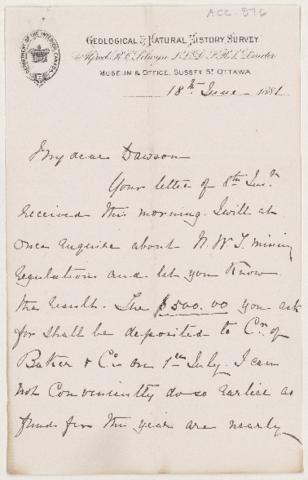 ACC. 576
GEOLOGICAL & NATURAL HISTORY SURVEY
Alfred R. C. Selwyn L.L.D. F.R.S. Director
MUSEUM & OFFICE, SUSSEX ST. OTTAWA.
18th June 1881
My dear Dawson
Your letter of 8th Inst.
received this morning. I will at
once enquire about N.W.T. mining
regulations and let you know
the result. The $500.00 you ask
for shall be deposited to Cr. of
Baker & Co on 1st July. I can
not conveniently do so earlier as
funds for the year are nearly